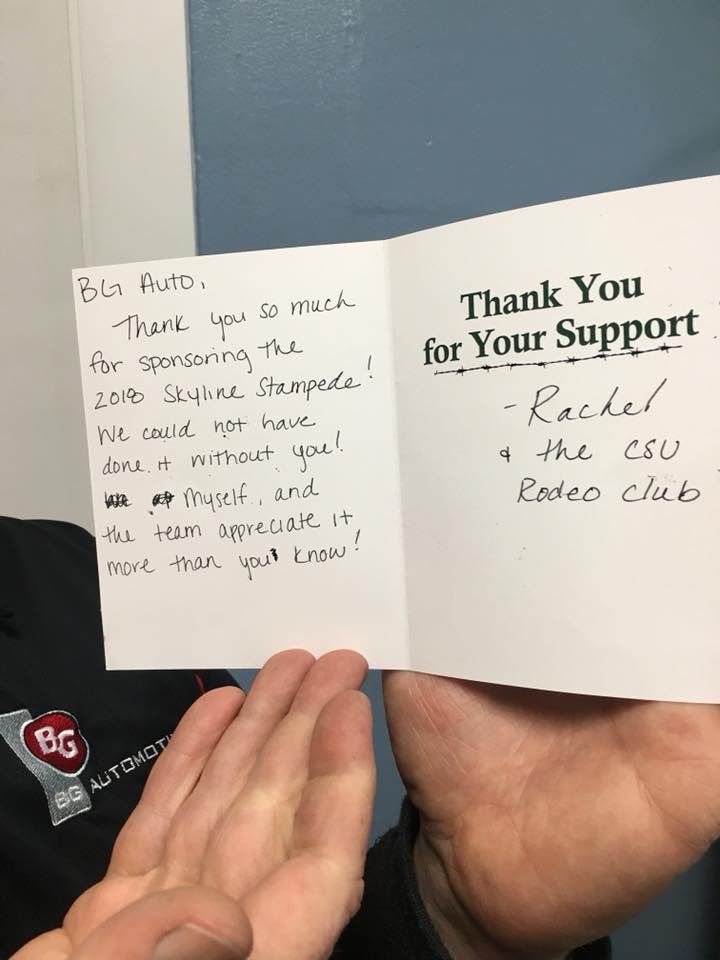 BG Auto,
Thank you so much
for sponsoring the
2018 Skyline Stampede!
We could not have
done it without you!
Myself, and
the team appreciate it
more than you know!
Thank You
for Your Support
- Rachel
& the CSU
Rodeo Club
BG
BG AUTOMOTI